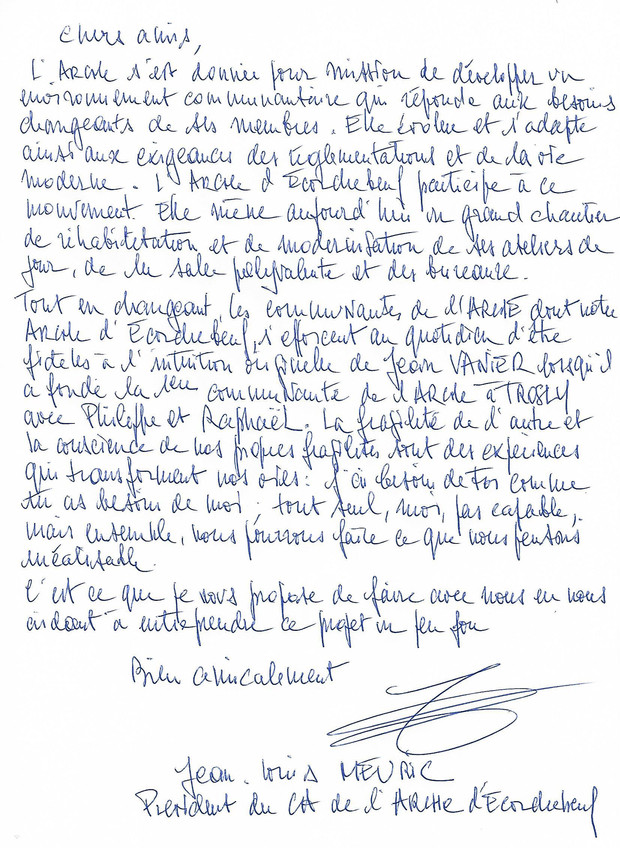 Chers amis,
L'ARCHE s'est donnée pour mission de développer un
environnement communautaire qui réponde aux besoins
changeants de ses membres. Elle évolue et s'adapte
ainsi aux exigeances des réglementations et de la vie
moderne. L'ARCHE d'Ecorchebeuf participe à ce
mouvement. Elle mène aujourd'hui un grand chantier
de réhabilitation et de modernisation de ses ateliers de
jour, de la salle polyvalente et des bureaux.
Tout en changeant, les communautés de l'ARCHE dont notre
ARCHE d'Ecorchebeuf, s'efforcent au quotidien d'être
fidèles à l'intuition originelle de Jean VANIER lorsqu'il
a fondé la 1ère communauté de l'ARCHE à TROSLY
avec Philippe et Raphaël. La fragilité de l'autre et
la conscience de nos propres fragilités sont des expériences
qui transforment nos vies : j'ai besoin de toi comme
tu as besoin de moi ; tout seul, moi, pas capable,
mais ensemble, nous pouvons faire ce que nous pensons
inréalisable.
C'est ce que je vous propose de faire avec nous en nous
aidant à entreprendre ce projet un peu fou
Bien amicalement
Jean-Louis MEURIC
Président du CA de l'ARCHE d'Ecorchebeuf